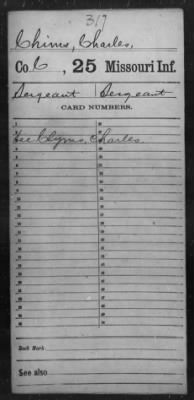 317
Chims, Charles,
Co. C, 25 Missouri Inf.
Sergeant | Sergeant
CARD NUMBERS.
See Clyms, Charles
Book Mark:
See also